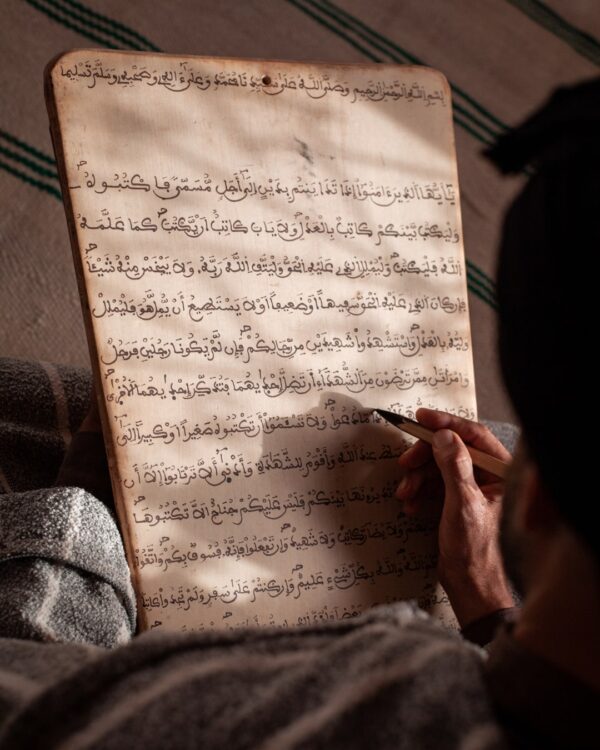 بسم الله الرحمن الرحيم وصلى الله على وعلى اله وصحبه وسلم تسليما
يا أيها الذين ءامنوا إذا تداينتم بدين إلى أجل مسمى فاكتبوه
وليكتب بينكم كاتب بالعدل ولا ياب كاتب ان يكتب كما علمه
الله فليكتب وليملل الذي عليه الحق وليتق الله ربه ولا يبخس منه شيئا
فإن كان الذي عليه الحق سفيها أو ضعيفا أو لا يستطيع أن يمل هو فليملل
وليه بالعدل واستشهدوا شهيدين من رجالكم فإن لم يكونا رجلين فرجل
وامرأتان ممن ترضون من الشهداء أن تضل إحداهما فتذكر إحداهما الأخرى
ولا الشهداء إذا ما دعوا ولا تسئموا أن تكتبوه صغيرا أو كبيرا إلى
أقسط عند الله وأقوم للشهادة وأدنى ألا ترتابوا إلا أن
تديرونها بينكم فليس عليكم جناح ألا تكتبوها
ولا يضار كاتب ولا شهيد وإن تفعلوا فإنه فسوق بكم واتقوا
الله والله بكل شيء عليم وإن كنتم على سفر ولم تجدوا كاتبا
بعضا الذي